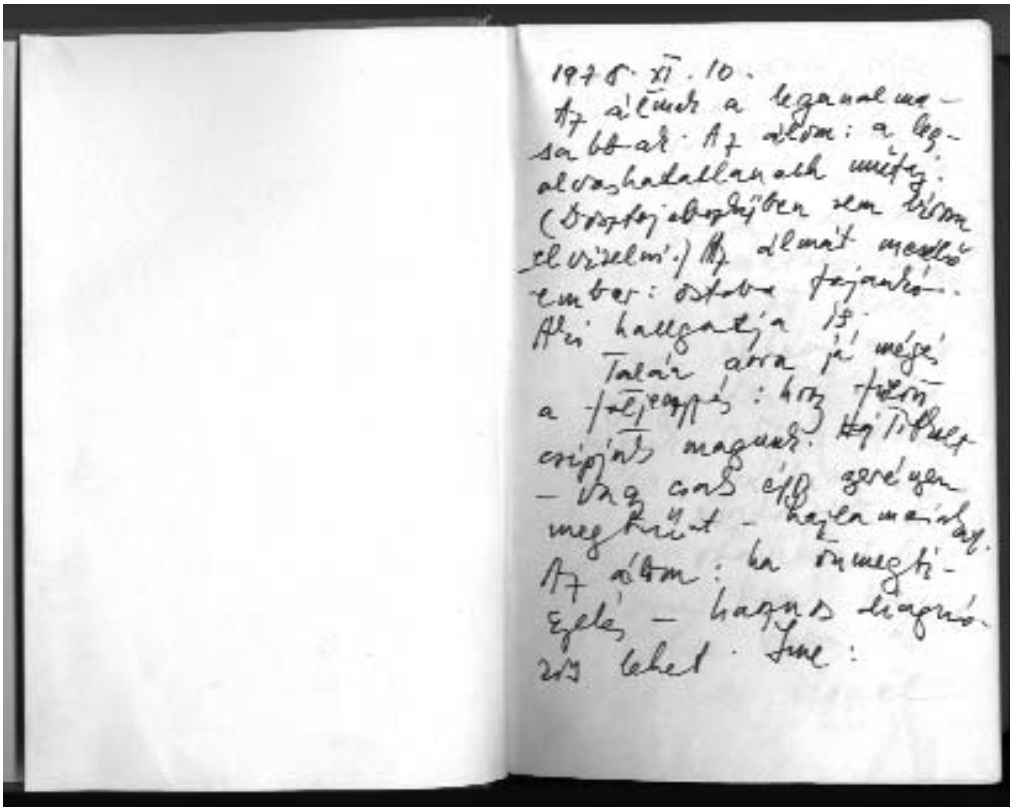 1978. XI. 10.
Az álmok a legunalma-
sabbak. Az álom: a leg-
olvashatatlanabb műfaj.
(Dosztojevszkijben sem bírom
elviselni.) Az álmát mesélő
ember: ostoba fajankó.
Aki hallgatja is.
Talán arra jó mégis
a följegyzés: hogy fülön
csípjük magunk.
– vagy csak épp gerényen
– hajlamainkat.
Az álom: ha önmegfi-
gyelés – hasznos diagnó-
zis lehet. Íme: